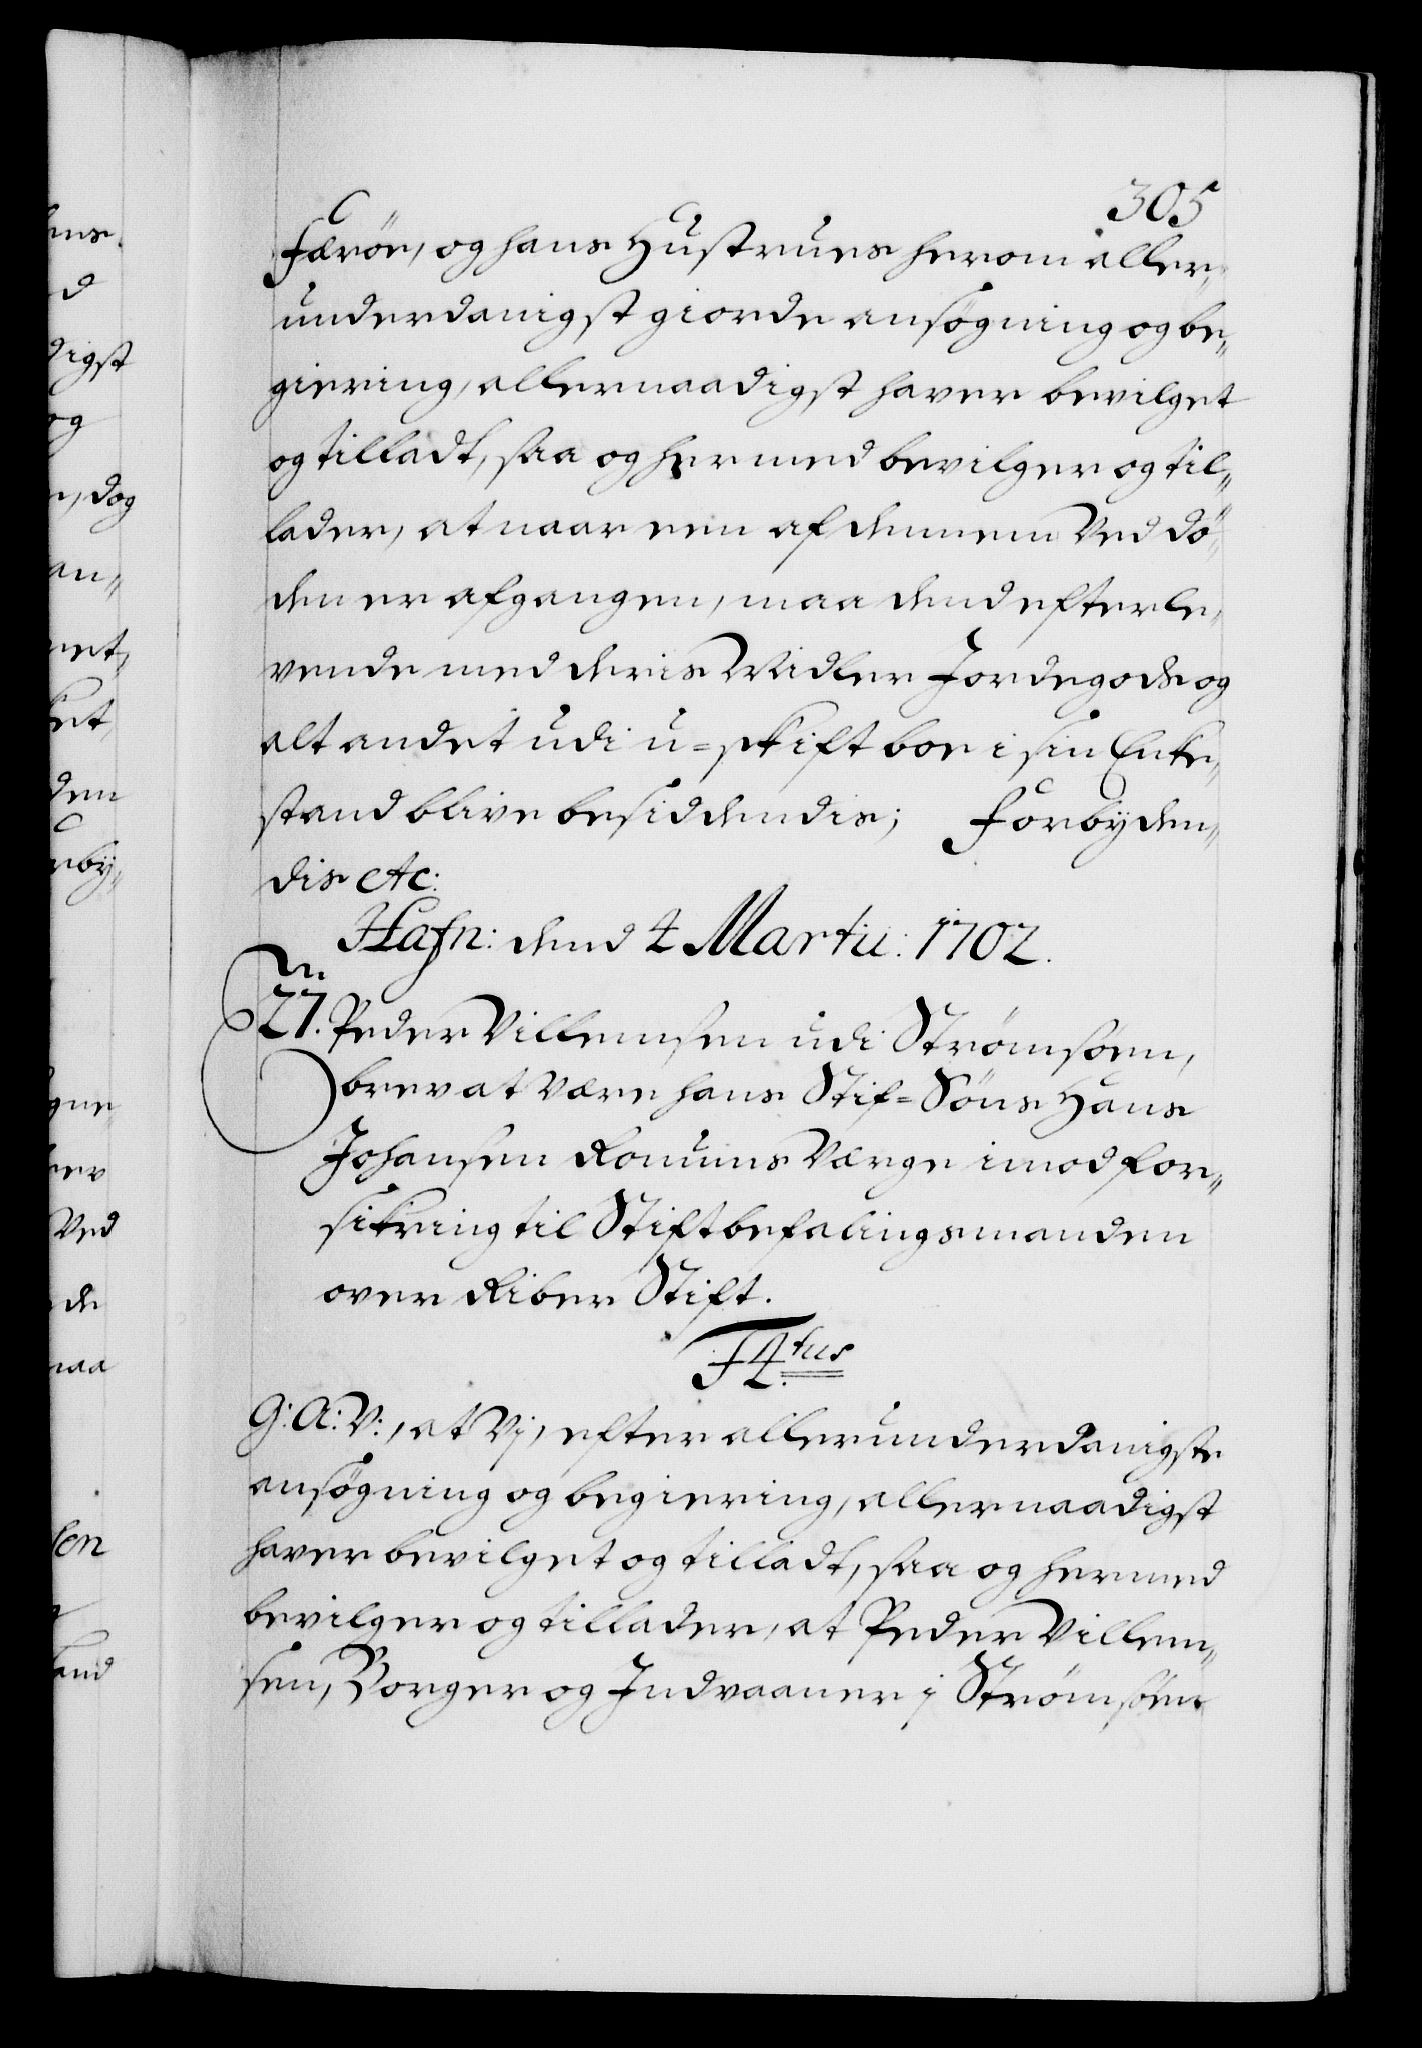 305
Færöe, og hans Hustrues herom aller„
underdanigst giorde ansögning og be„
giering, allernaadigst haver bevilget
og tilladt, saa og hermed bevilger og til„
lader, at naar een af dennem Ved dö„
den er afgangen, maa dend efterle„
vende med deris Midler Jordegods og
alt andet udi u=skift boe i sin Enke„
stand blive besiddendis; Forbyden„
dis etc:
Hafn: dend 4 Martii: 1702.
27. Peder Villemsen udi Strömsöen,
brev at være hans Stif=Söns Hans
Johansen Ronums Værge imod for„
sikring til Stiftbefalingsmanden
over Riber Stift.
F4.tus
G: A: V:, at Vj, efter allerunderdanigste
ansögning og begiering, allernaadigst
haver bevilget og tilladt, saa og hermed
bevilger og tillader, at Peder Villem„
sen, Borger og Indvaaner j Strömsöen